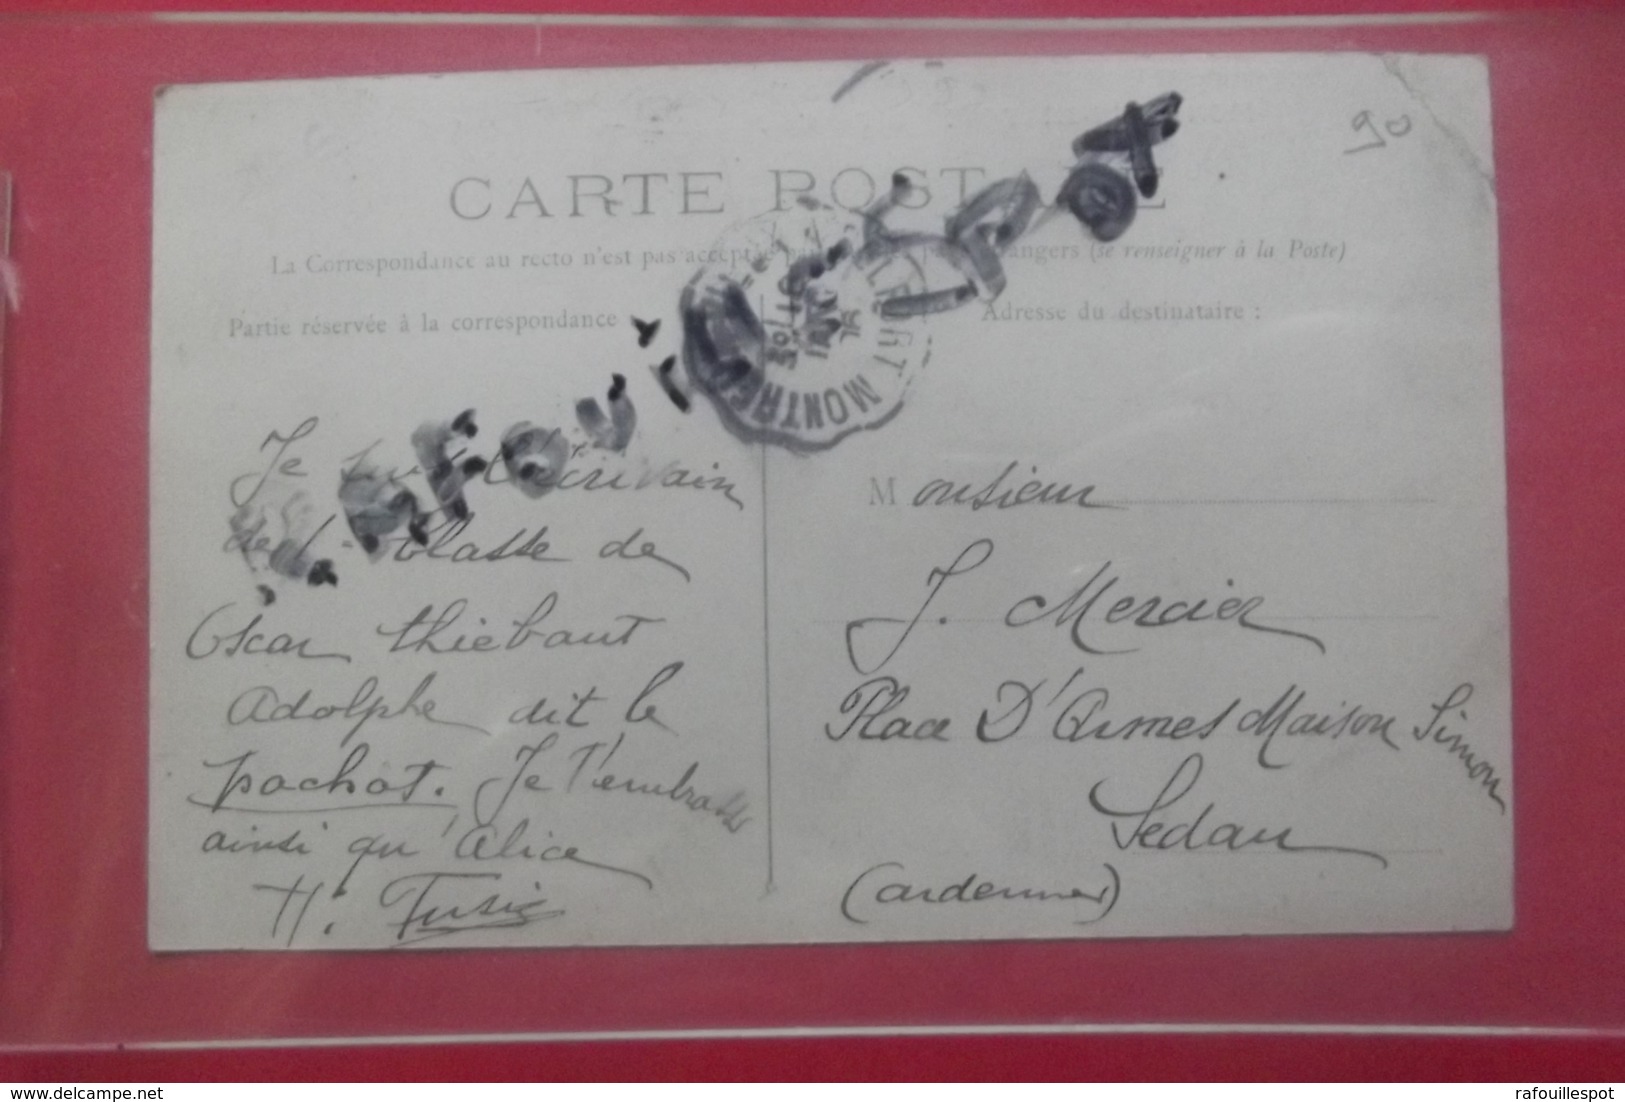 90
CARTE POSTALE
La Correspondance au recto n'est pas acceptée par angers (se renseigner à la Poste)
Partie réservée à la correspondance
Adresse du destinataire :
MONTRE
Je suis l'écrivain
de la Classe de
Oscar Thiébaut
Adolphe dit le
pachot. Je t'embrasse
ainsi qu'Alice
H. Tusiz
Monsieur
J. Mercier
Place D'Armes Maison Simon
Sedan
(Ardennes)
rafouillespot
delcampe.net